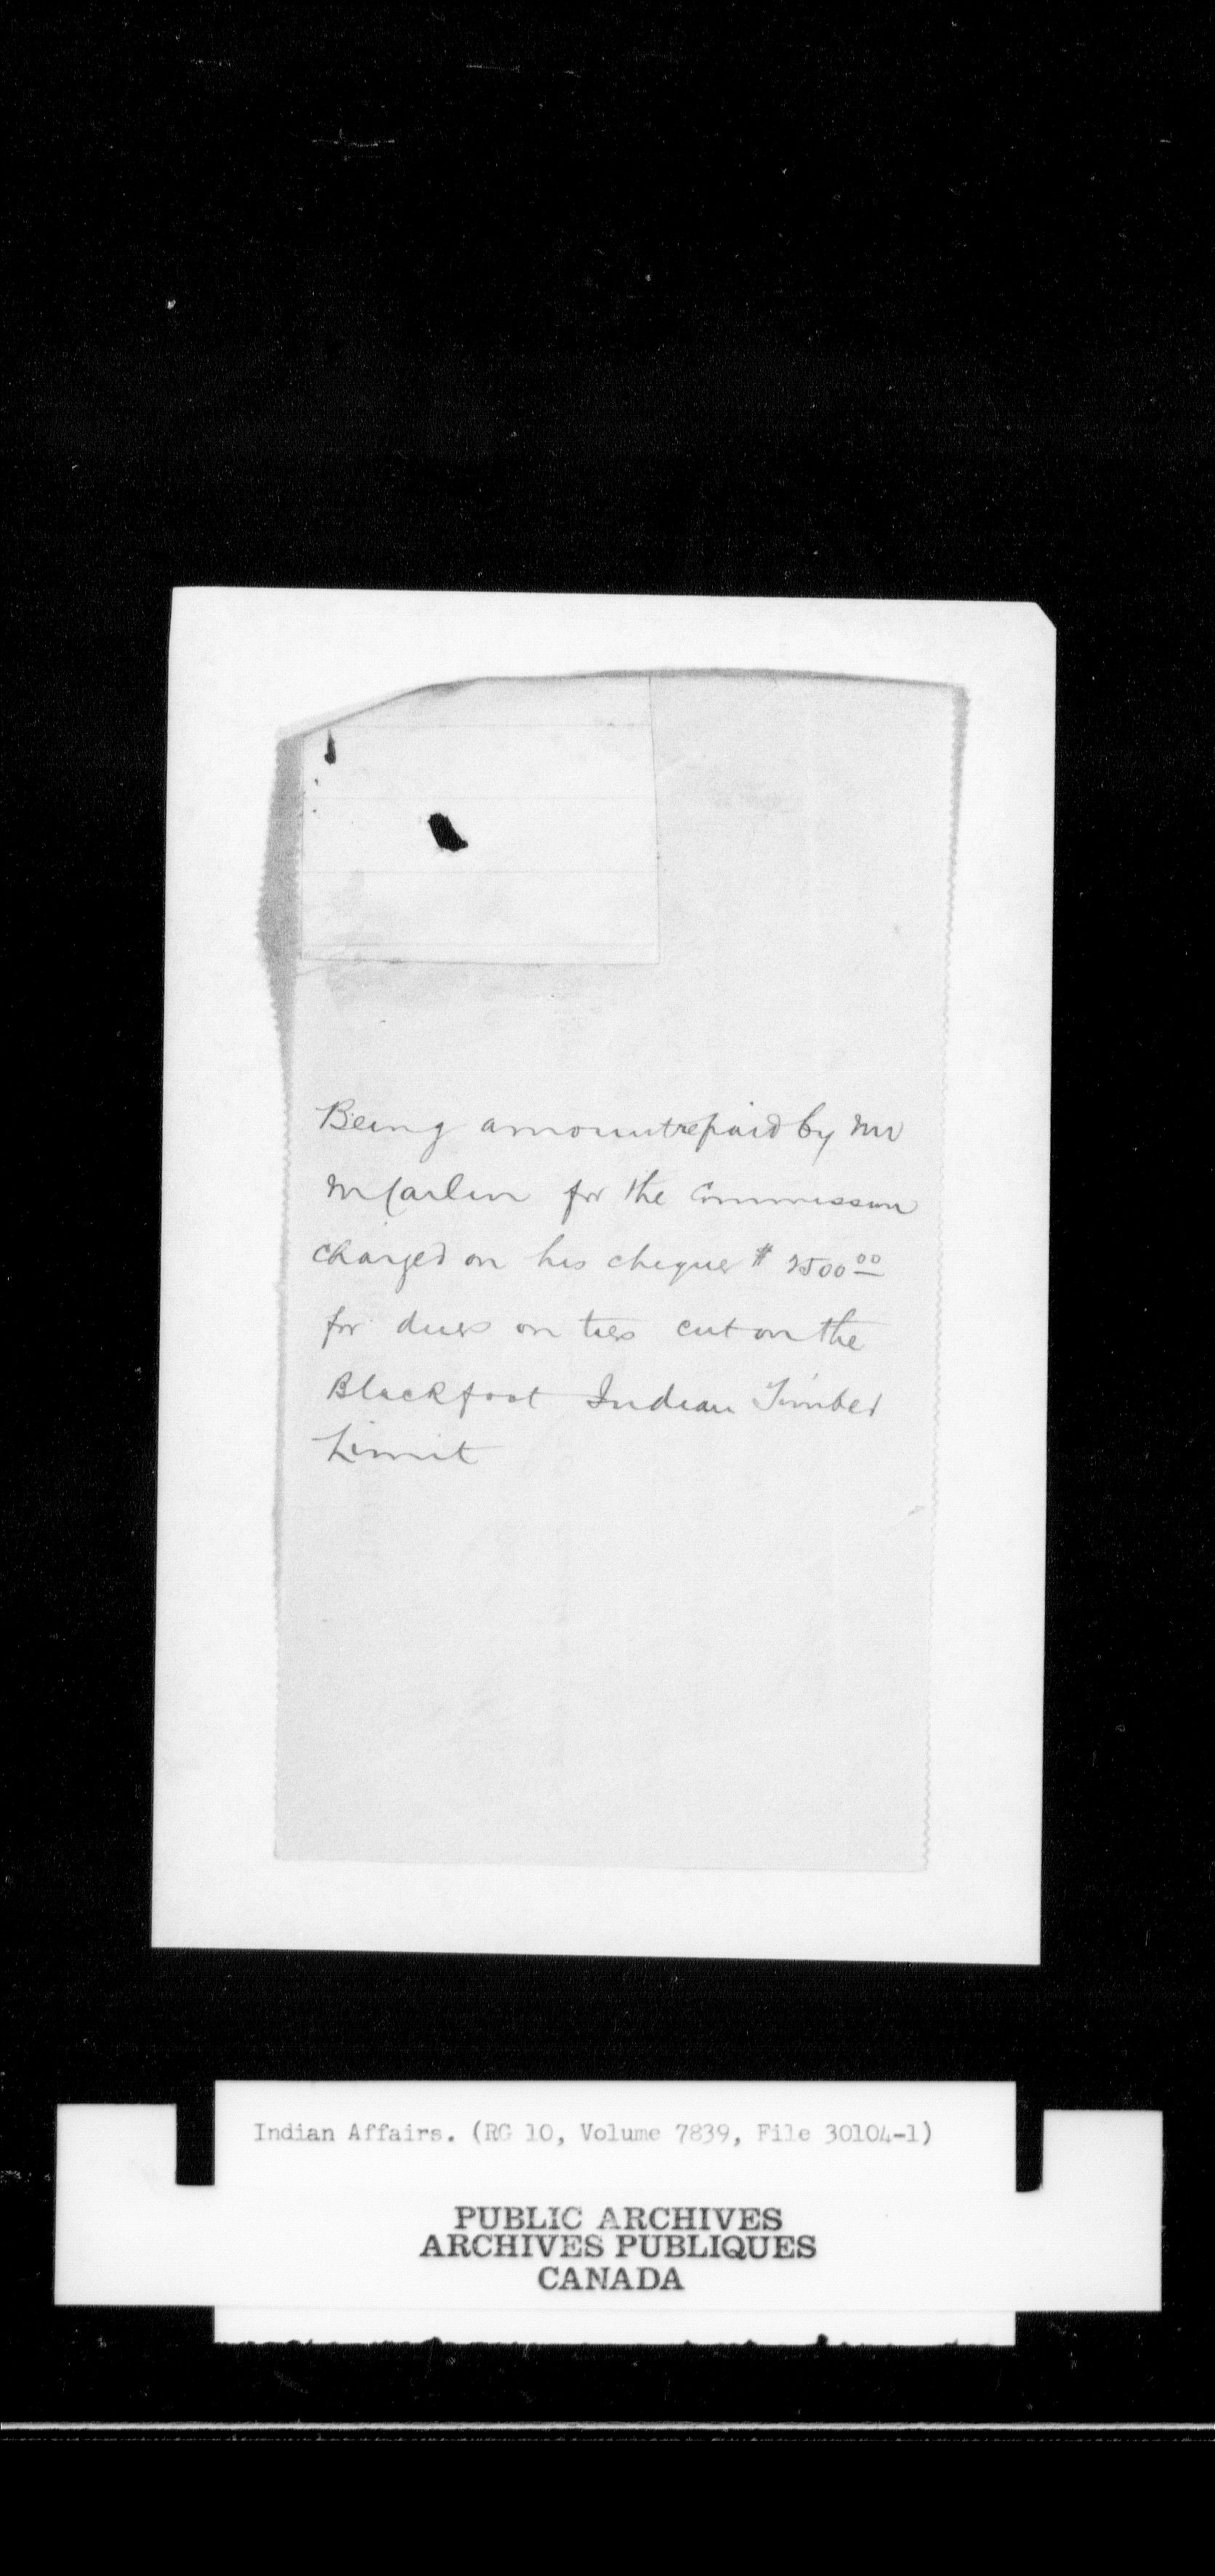 Being amount repaid by Mr
McCarlin for the Commission
charged on his cheque $2500.00
for dues on ties cut on the
Blackfoot Indian Timber
Limit
Indian Affairs. (RG 10, Volume 7839, File 30104-1)
PUBLIC ARCHIVES
ARCHIVES PUBLIQUES
CANADA